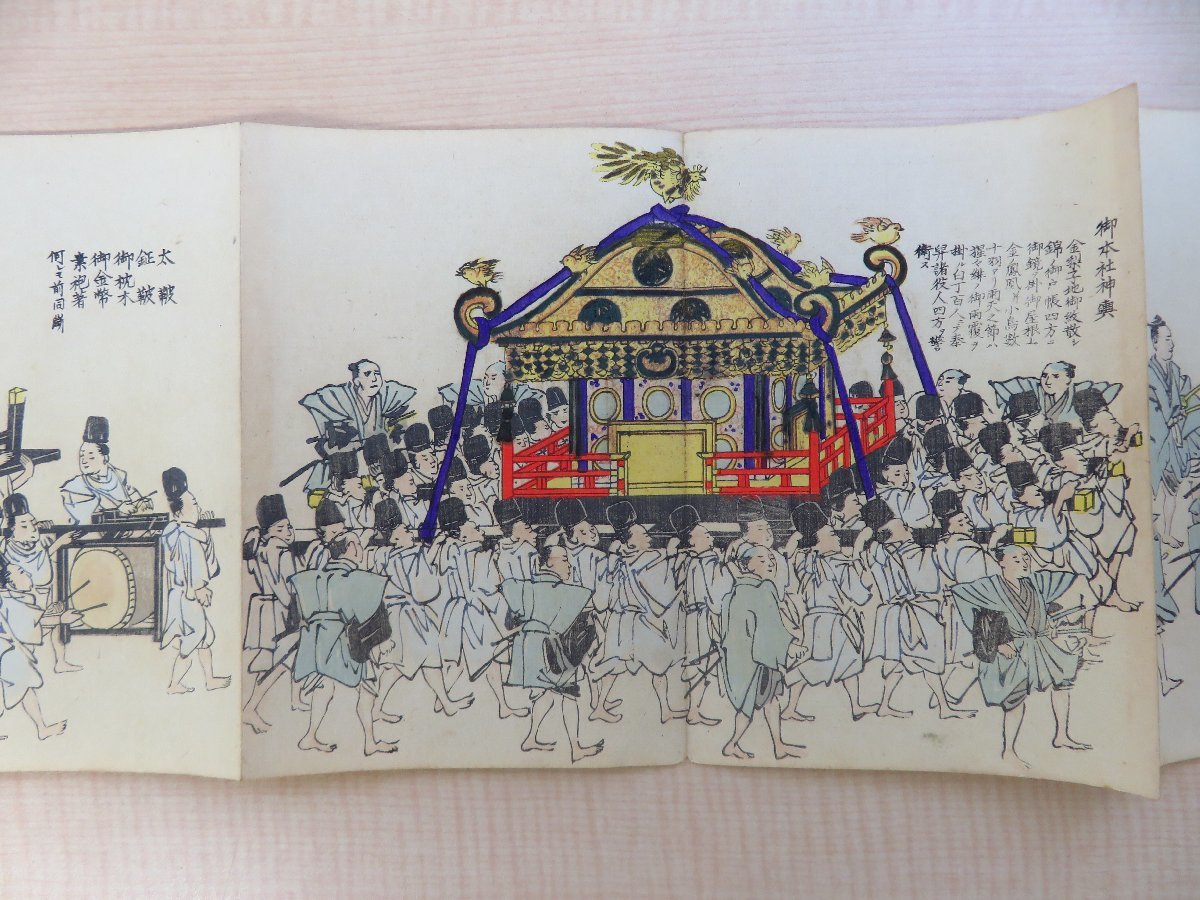 御本社神輿
金梨子地御紋散シ
錦御戸帳四方ニ
御鏡ヲ掛御屋根上
金鳳凰并小鳥数
十羽アリ雨天之節ハ
猩々緋ノ御雨覆ヲ
掛ル白丁百人ニテ奉
舁諸役人四方警
衛ス
太鞁
鉦鞁
御枕木
御金幣
素袍着
何モ前同断